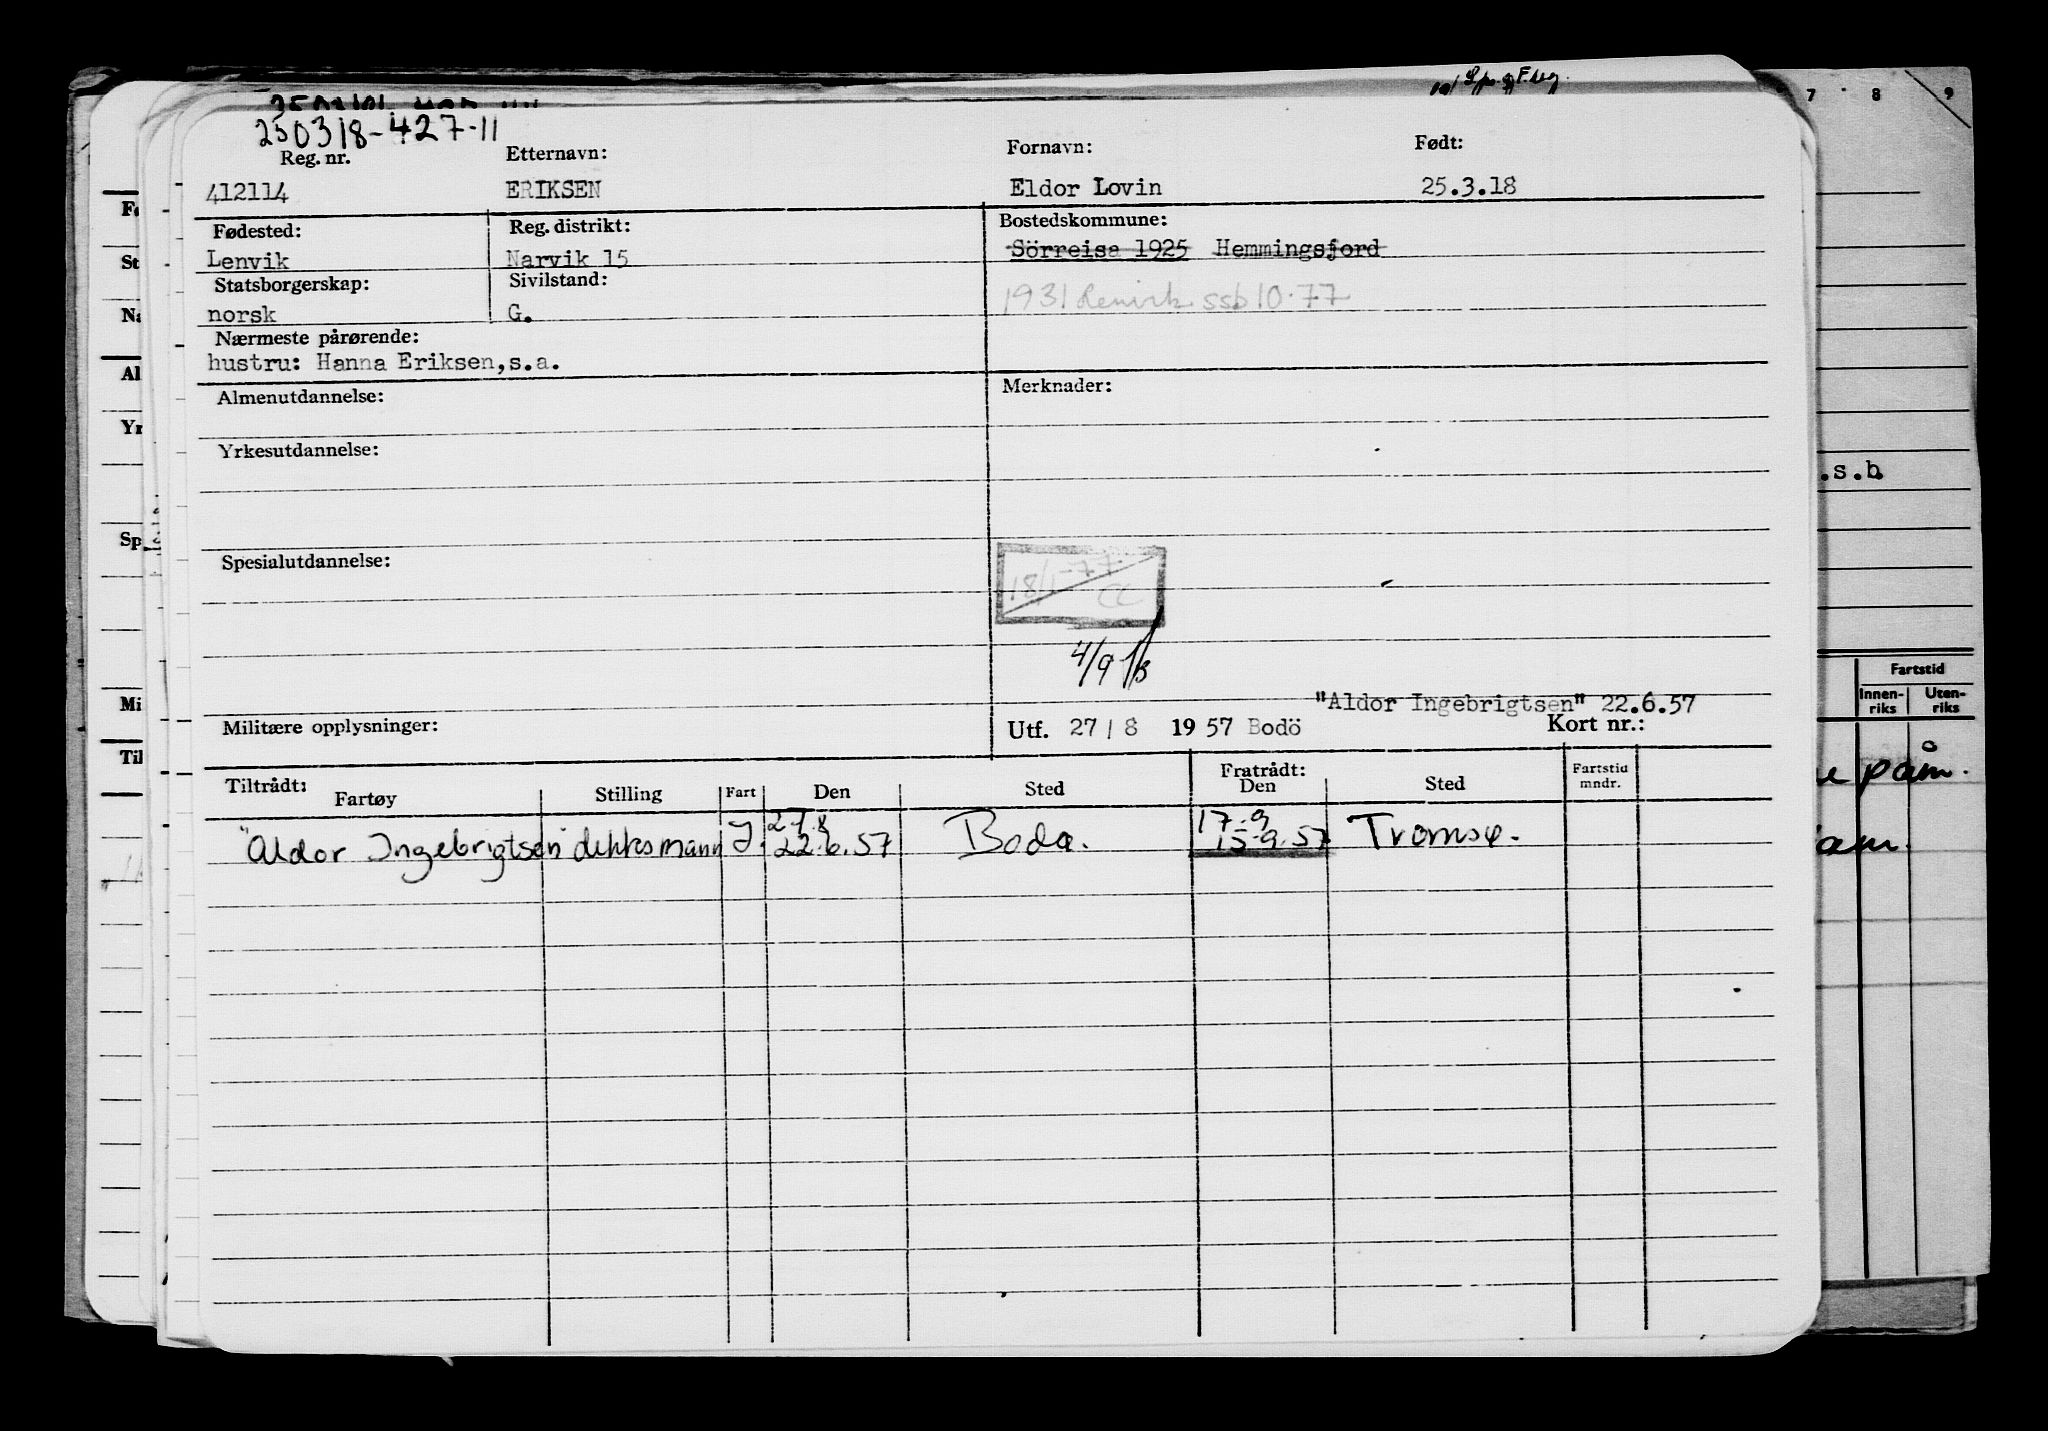 250318-427-11
Reg. nr. Etternavn: Fornavn: Født:
412114 ERIKSEN Eldor Lovin 25.3.18
Fødested: Reg. distrikt: Bostedskommune:
Lenvik Narvik 15 Sörreisa 1925 Hemmingsfjord
Statsborgerskap: Sivilstand:
norsk G. 1931 Lenvik ssb 10.77
Nærmeste pårørende:
hustru: Hanna Eriksen,s.a.
Almenutdannelse: Merknader:
Yrkesutdannelse:
Spesialutdannelse:
18/1-77
CC
4/9
"Aldor Ingebrigtsen" 22.6.57
Militære opplysninger: Utf. 27 / 8 19 57 Bodö Kort nr.:
Tiltrådt: Fratrådt:
Fartøy Stilling Fart Den Sted Den Sted Fartstid mndr.
27.8 17.9
"Aldor Ingebrigtsen" dekksmann J. 22.6.57 Bodø. 15.9.57 Tromsø.
7 8 9
.s.b
Fartstid
Innen-
riks
Uten-
riks
påm.
Fø
St
Na
Al
Yr
Sp
Mi
Til